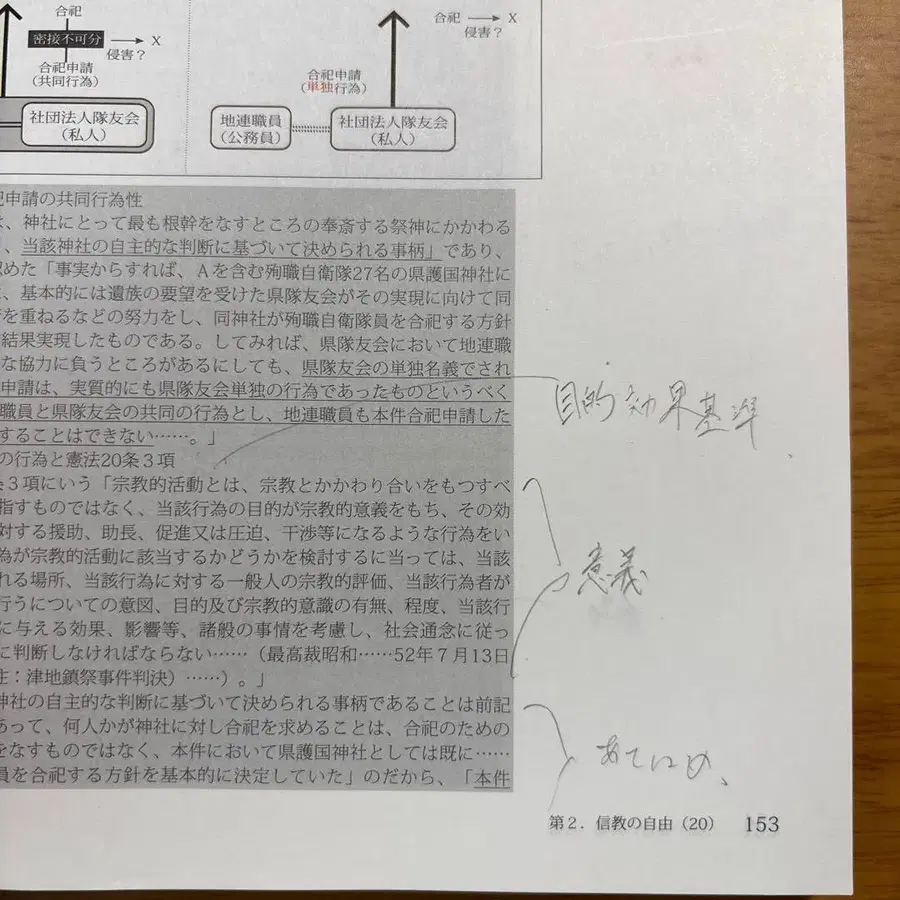 合祀
密接不可分
X
侵害？
合祀申請
（共同行為）
社団法人隊友会
（私人）
合祀
X
侵害？
合祀申請
（単独行為）
地連職員
（公務員）
社団法人隊友会
（私人）
祀申請の共同行為性
は、神社にとって最も根幹をなすところの奉斎する祭神にかかわる
、当該神社の自主的な判断に基づいて決められる事柄」であり、
認めた「事実からすれば、Ａを含む殉職自衛隊27名の県護国神社に
、基本的には遺族の要望を受けた県隊友会がその実現に向けて同
を重ねるなどの努力をし、同神社が殉職自衛隊員を合祀する方針
結果実現したものである。してみれば、県隊友会において地連職
な協力に負うところがあるにしても、県隊友会の単独名義でされ
申請は、実質的にも県隊友会単独の行為であったものというべく
職員と県隊友会の共同の行為とし、地連職員も本件合祀申請した
することはできない……。」
の行為と憲法20条３項
条３項にいう「宗教的活動とは、宗教とかかわり合いをもつすべ
指すものではなく、当該行為の目的が宗教的意義をもち、その効
対する援助、助長、促進又は圧迫、干渉等になるような行為をい
為が宗教的活動に該当するかどうかを検討するに当っては、当該
れる場所、当該行為に対する一般人の宗教的評価、当該行為者が
行うについての意図、目的及び宗教的意識の有無、程度、当該行
に与える効果、影響等、諸般の事情を考慮し、社会通念に従っ
に判断しなければならない……（最高裁昭和……52年７月13日
注：津地鎮祭事件判決）……）。」
神社の自主的な判断に基づいて決められる事柄であることは前記
あって、何人かが神社に対し合祀を求めることは、合祀のための
をなすものではなく、本件において県護国神社としては既に……
員を合祀する方針を基本的に決定していた」のだから、「本件
目的効果基準
意義
あてはめ、
第２．信教の自由（20） 153